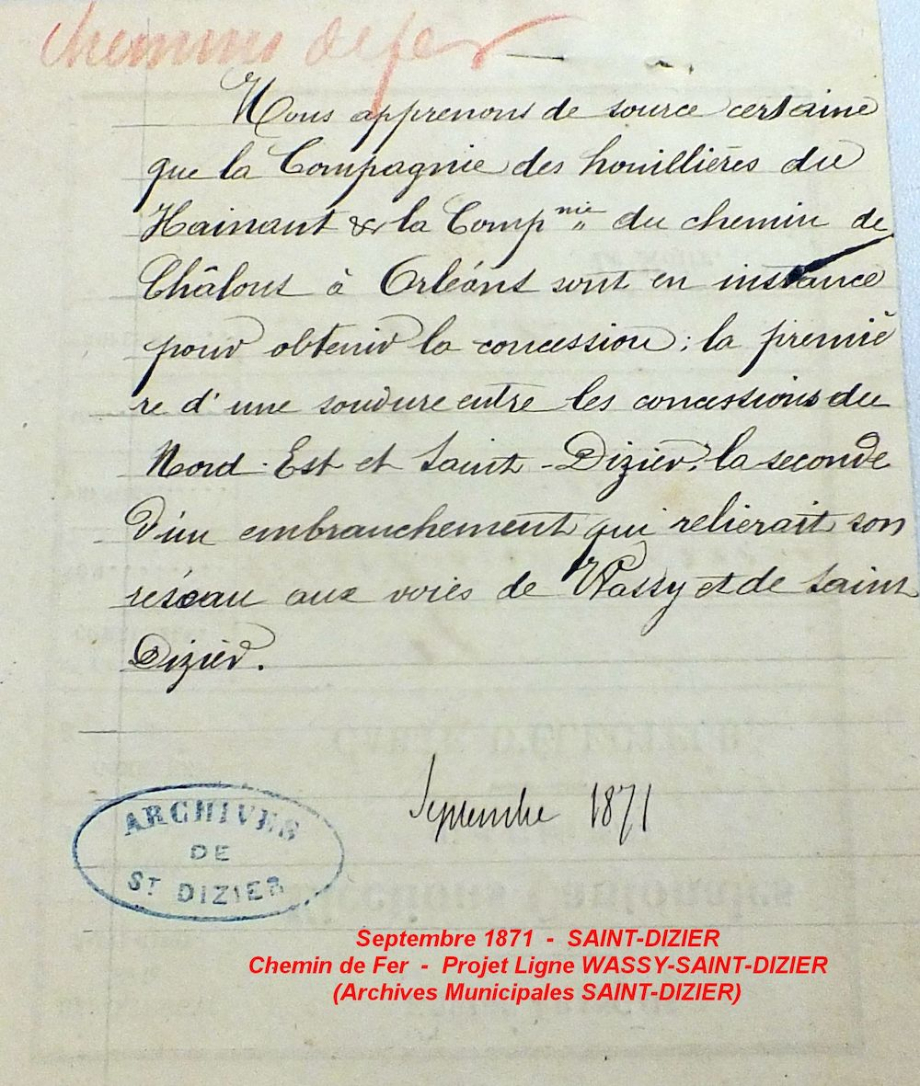 Chemins de fer
Nous apprenons de source certaine
que la Compagnie des houillières du
Hainaut & la Comp.nie du chemin de
Châlons à Orléans sont en instance
pour obtenir la concession; la premiè
re d'une soudure entre les concessions du
Nord-Est et Saint-Dizier, la seconde
d'un embranchement qui relierait son
réseau aux voies de Wassy et de Saint
Dizier.
Septembre 1871
ARCHIVES
DE
ST DIZIER
Septembre 1871 - SAINT-DIZIER
Chemin de Fer - Projet Ligne WASSY-SAINT-DIZIER
(Archives Municipales SAINT-DIZIER)